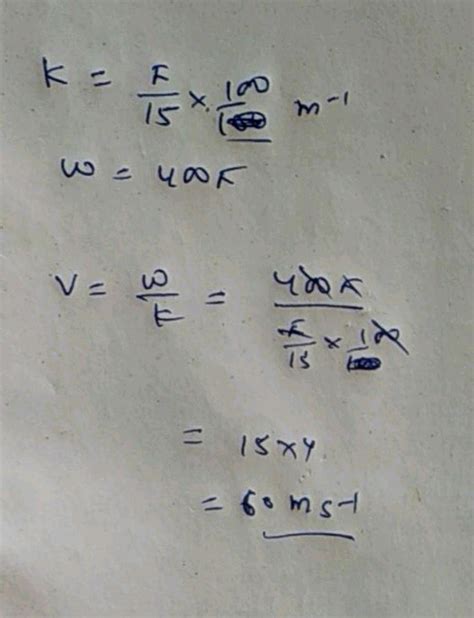 K = π/15 × 100/1 m⁻¹
ω = 400π
V = ω/k = 400π / (π/15 × 100/1)
= 15×4
= 60 ms⁻¹